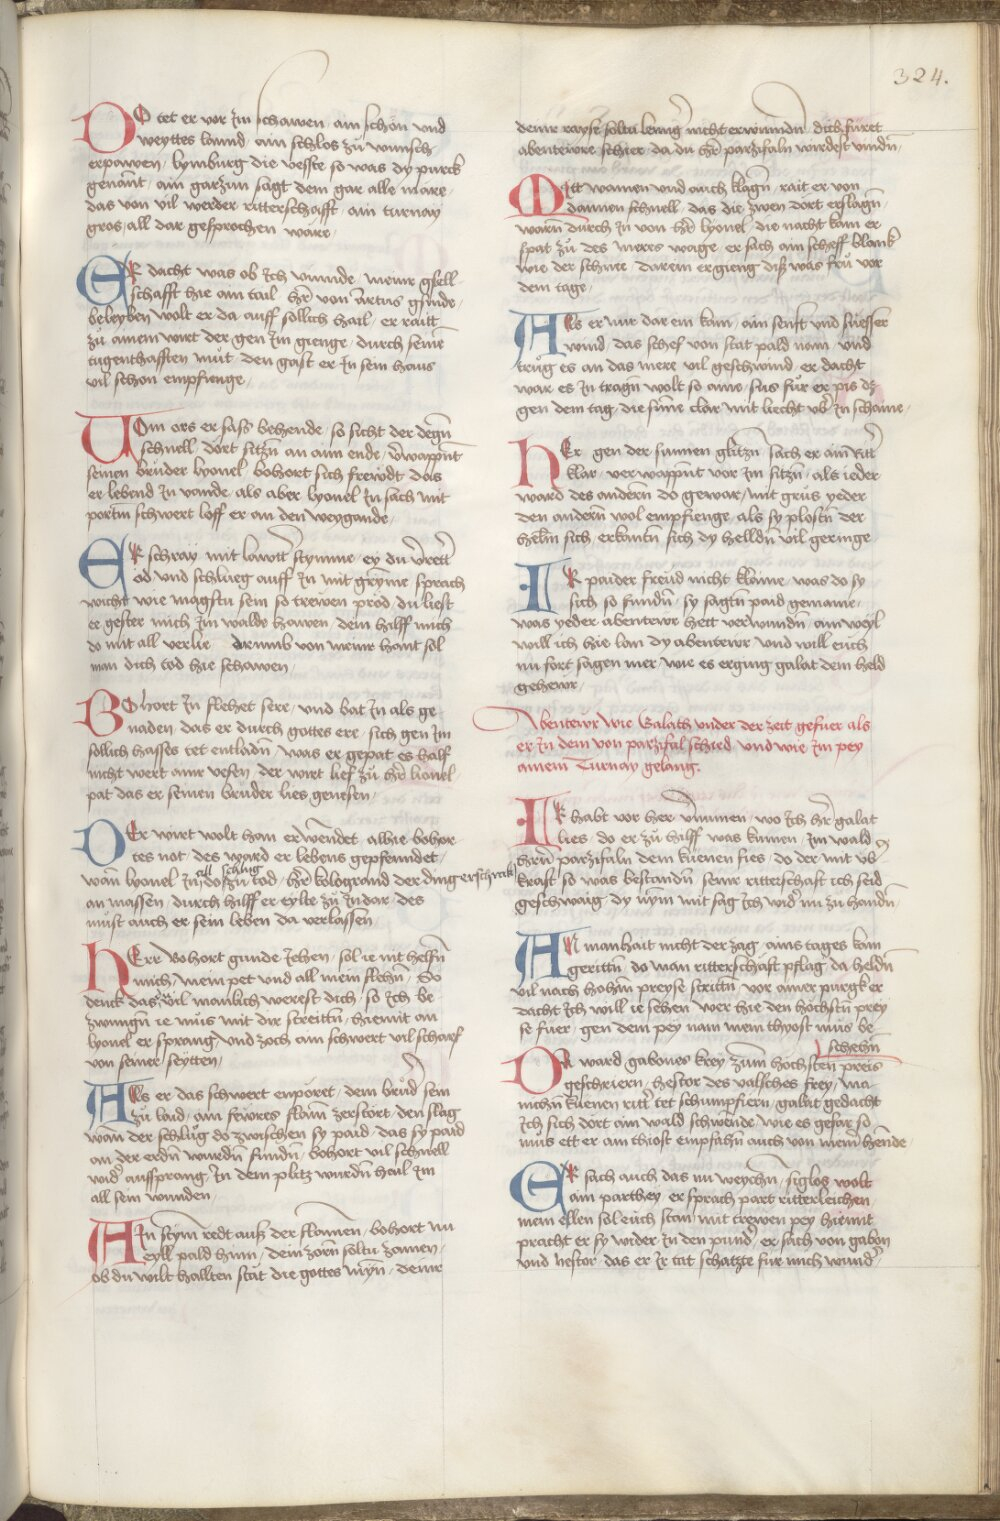 324.
DO tet er vor Im schawen ain schon und
weyttes lannd ain schlos zu wunsch
erpawen lymburg die vesste so was dy purck
genannt ain garzun sagt dem gar alle mare
das von vil werder ritterschafft ain turnay
gros all dar gesprochen ware
ER dacht was ob Ich vunnde meiner gsell
schafft hie ain tail hr̄ von artus gsinde
beleyben wolt er da auff sollich hail er raitt
zu ainem wirt der gen Im gienge durch seinē
tugenthafften muͦt den gast er In sein haus
vil schon empfienge
VOm ors er sass behende so sicht der degn̄
schnell dort sitzn̄ an aim ende v̄wappn̄t
seinen bruͤder lyonel bohort sich frewdt das
er lebend In vande als aber lyonel In sach mit
portm schwert loff er an den weygande
ER schray mit lawtt̄ stymme ey du v̄rett̄
od und schlueg auff In mit gryme sprach
wicht wie magstu sein so trewen prod du liest
er gester mich Im walde hawen dein hilff mich
do mit all verlie drumb von meinr hant sol
man dich tod hie schawen
BOhort In flehet sere und bat In als ge
naden das er durch gottes ere sich gen Im
sollich hasses tet entladn̄ was er gepat es half
nicht wert ainr vesen der wirt lief zu hr̄ lionel
pat das er seinen bruder lies genesen
DEr wirt wolt han erwendet alhie bohor
tes not des ward er lebens gepfenndet
wan lyonel In all schlug do zu tod hr̄ kologrand der ding erschrak
an massen durch hilff er eylte zu In dar des
muͦst auch er sein leben da verlassen
HErr bohort gunde Iehen sol ie nit helfn̄
mich mein pet und all mein flehn̄ So
denck das vil manlich werest dich so Ich be
zwungn̄ ie muͦs mit dir streittn̄ hiemit an
lyonel er sprang und zoch ain schwert vil scharf
von seiner seytten
ALs er das schwert enporet dem bruͦd̄ sein
zu laid ain fewres flam̄ zerstort den slag
wan̄ der schluͦg do zwischen sy paid das sy paid
an der erdn̄ wurdn̄ fundn̄ bohort vil schnell
wid̄ auffsprang In dem plitz wurdn̄ hail Im
all sein wunden
AIn stym̄ redt auss der flamen̄ bohort nu
eyll pald hinn dein zorn soltu zamen
ob du wilt hallten stat die gottes myn̄ deinr
deinr rayse soltu lennḡ nicht erwindn̄ dich furet
abentewre schier da du hr̄ parzifaln wirdest vindn̄
MItt wainen und auch klagn̄ rait er von
dannen schnell das die zwen dort erslagn̄
warn̄ durch In von hr̄ lyonel die nacht kam er
spat zu des meres wage er sach ain scheff blank
wie der schnee darein er gieng diss was fru vor
dem tage
ALs er nur dar ein kam ain senft und suesser
wind das schef von stat pald nam und
truͦg es an das mere vil geschwind er dacht
war es In tragn̄ wolt so aine sus fuͦr er pis dz
gen dem tag die sunne clar mit liecht vb̄ In schaine
HEr gen der sunnen glitzn̄ sach er ain̄ ritt̄
klar verwappn̄t vor Im sitzn̄ als ieder
ward des andern do gewar mit grus yeder
den andern wol empfienge als sy plostn̄ der
helm̄ sich erkantn̄ sich dy helldn̄ vil geringe
IR paider freud nicht klaine was do sy
sich so fundn̄ sy sagtn̄ paid gemaine
was yeder abentewr hett verwundn̄ ain weyl
will ich hie lan dy abentewr und will euch
nu fort sagen mer wie es erging galat dem held
gehewr
Abentewr wie Galath under der zeit gefuer als
er In dem von parzifal schied und wie Im pey
ainem Turnay gelang.
IR habt vor her vernumen wo Ich hr̄ galat
lies do er zu hilff was kumen Im wald
hern̄ parzifaln dem kuenen fies do der mit vb̄
kraft so was bestandn̄ seinr ritterschaft ich seid
geschwaig dy ūm̄ mit sag Ich wid̄ nu zu handn̄
AN manhait nicht der zag ains tages kam
gerittn̄ do man ritterschaft pflag da heldn̄
vil nach hohn̄ preyse strittn̄ vor ainer purgk er
dacht Ich will ie sehen wer hie den hochstn̄ prey
se fuer gen dem pey nam mein thyost mus be
schehn̄
DO ward gabones krey zum̄ hochsten preis
geschriern hestor des valsches frey ma
nichn̄ kuenen ritt̄ tet schumpfiern galat gedacht
Ich sich dort ain wald schwende wie es gefar so
muͦs ett er ain thiost empfahn̄ auch von mein̄ hende
ER sach auch das nu weychn̄ siglos wolt
ain parthey er sprach part ritterleichen
mein ellen sol euch stan mit trewen pey hiemit
pracht er sy wider In den pund̄ er sach von gabon
und hestor das er Ir tat schatzte fur mich wund̄